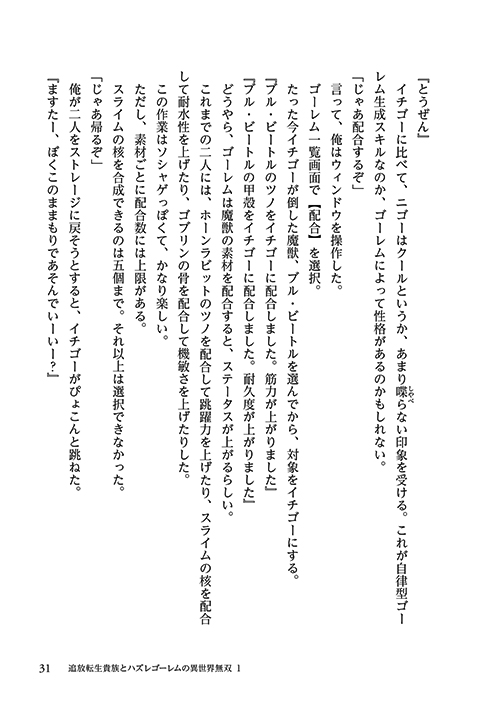 『とうぜん』
　イチゴーに比べて、ニゴーはクールというか、あまり喋らない印象を受ける。これが自律型ゴー
レム生成スキルなのか、ゴーレムによって性格があるのかもしれない。
「じゃあ配合するぞ」
　言って、俺はウィンドウを操作した。
　ゴーレム一覧画面で【配合】を選択。
　たった今イチゴーが倒した魔獣、ブル・ビートルを選んでから、対象をイチゴーにする。
『ブル・ビートルのツノをイチゴーに配合しました。筋力が上がりました』
『ブル・ビートルの甲殻をイチゴーに配合しました。耐久度が上がりました』
　どうやら、ゴーレムは魔獣の素材を配合すると、ステータスが上がるらしい。
　これまでの二人には、ホーンラビットのツノを配合して跳躍力を上げたり、スライムの核を配合
して耐水性を上げたり、ゴブリンの骨を配合して機敏さを上げたりした。
　この作業はソシャゲっぽくて、かなり楽しい。
　ただし、素材ごとに配合数には上限がある。
　スライムの核を合成できるのは五個まで。それ以上は選択できなかった。
「じゃあ帰るぞ」
　俺が二人をストレージに戻そうとすると、イチゴーがぴょこんと跳ねた。
『ますたー、ぼくこのままもりであそんでいーいー？』
しゃべ
31　追放転生貴族とハズレゴーレムの異世界無双 1